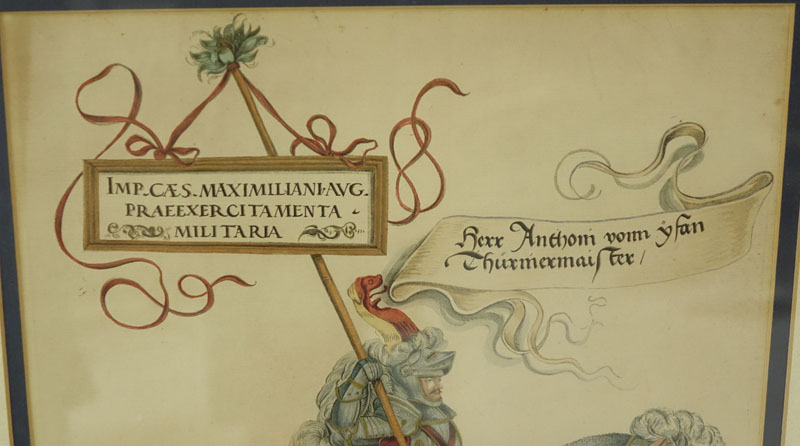 IMP. CÆS. MAXIMILIANI. AVG.
PRAEEXERCITAMENTA
MILITARIA
Herr Anthoni vonn ÿfan
Thürmermaister /